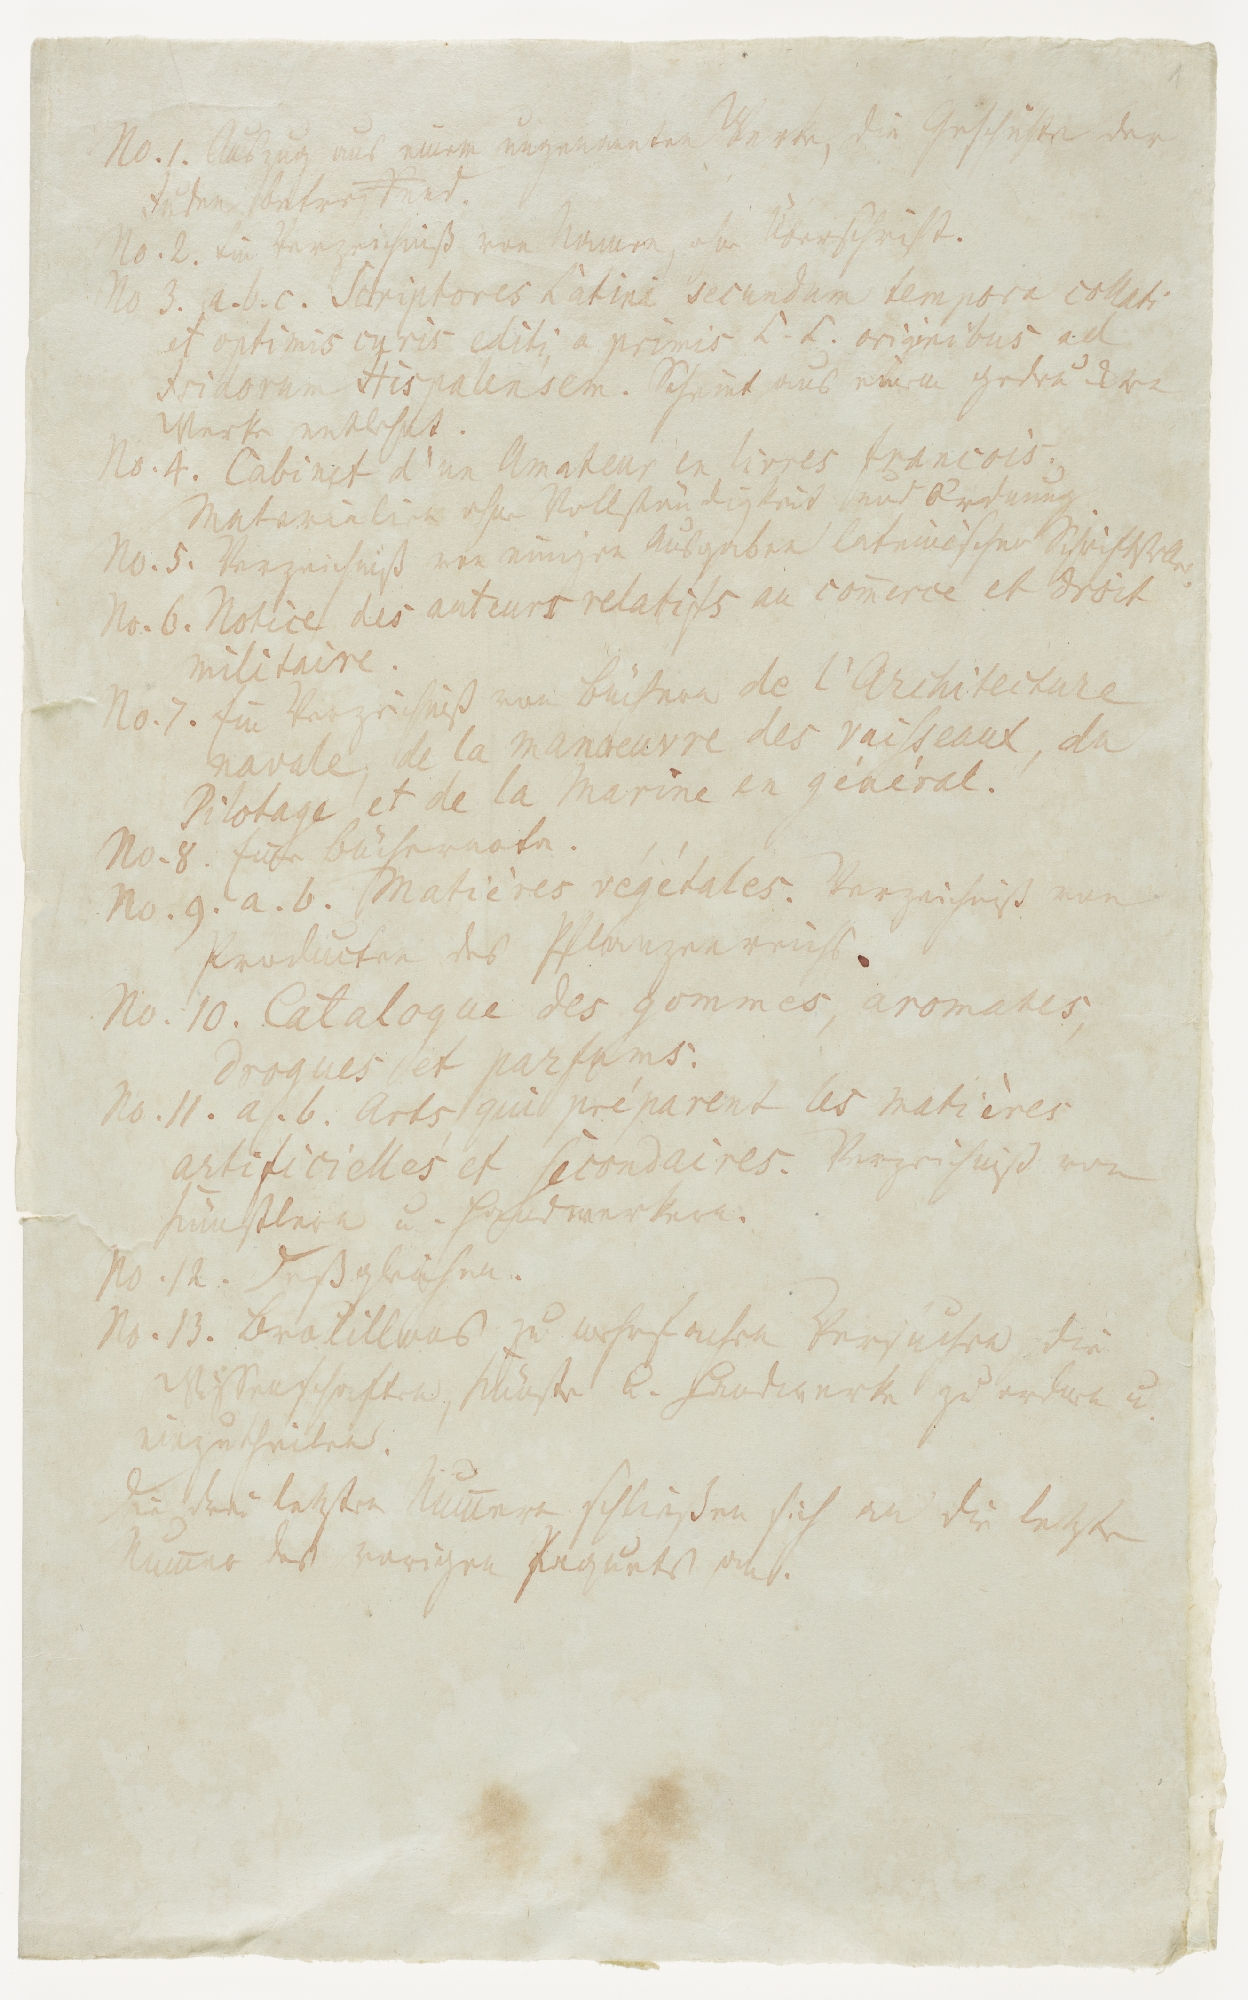 1
No. 1. Auszug aus einem ungenannten Werke, die Geschichte der
Juden betreffend.
No. 2. Ein Verzeichniß von Namen, ohne Überschrift.
No 3. a. b. c. Scriptores Latini secundum tempora collati
et optimis curis editi, a primis L. L. originibus ad
Isidorum Hispalensem. Scheint aus einem gedruckten
Werke entlehnt.
No. 4. Cabinet d'un Amateur en livres francois.
Materialien ohne Vollständigkeit und Ordnung
No. 5. Verzeichniß von einigen Ausgaben lateinischer Schriftsteller.
No. 6. Notice des auteurs relatifs au com̅erce et droit
militaire.
No. 7. Ein Verzeichniß von Büchern de l'Architecture
navale, de la manoeuvre des vaisseaux, du
Pilotage et de la Marine en général.
No. 8. Eine Büchernota.
No. 9. a. b. Matières végétales. Verzeichniß von
Producten des Pflanzenreichs.
No. 10. Catalogue des gommes, aromates,
drogues et parfums.
No. 11. a. b. Arts qui préparent les matières
artificielles et secondaires. Verzeichniß von
Künstlern u. Handwerkern.
No. 12. Deßgleichen.
No. 13. Brouillons zu mehrfachen Versuchen, die
Wissenschaften, Künste u. Handwerke zu ordnen u.
einzutheilen.
Die drei letzten Num̅ern schließen sich an die letzte
Num̅er des vorigen Paquets an.